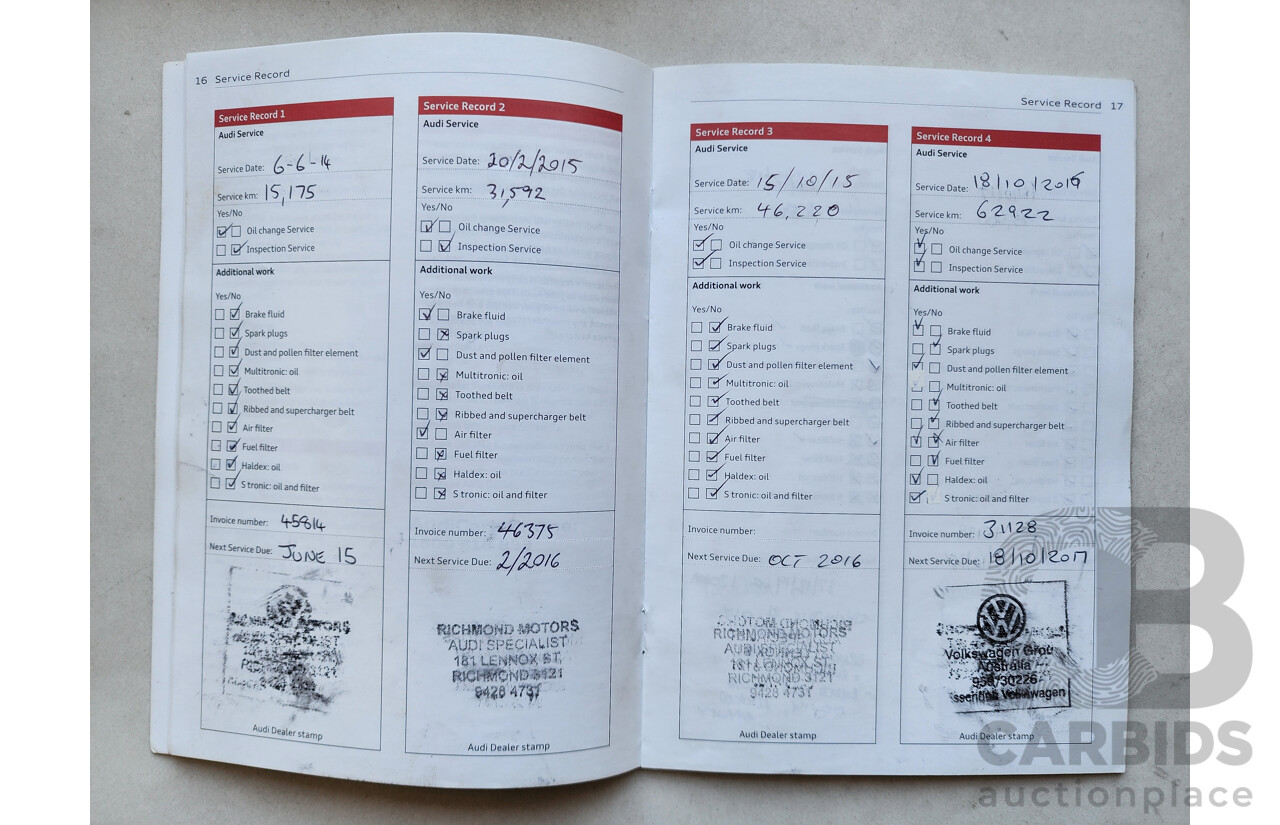 16 Service Record
Service Record 1
Audi Service
Service Date: 6-6-14
Service km: 15,175
Yes/No
Oil change Service
Inspection Service
Additional work
Yes/No
Brake fluid
Spark plugs
Dust and pollen filter element
Multitronic: oil
Toothed belt
Ribbed and supercharger belt
Air filter
Fuel filter
Haldex: oil
S tronic: oil and filter
Invoice number: 45814
Next Service Due: JUNE 15
Audi Dealer stamp
Service Record 2
Audi Service
Service Date: 20/2/2015
Service km: 31,592
Yes/No
Oil change Service
Inspection Service
Additional work
Yes/No
Brake fluid
Spark plugs
Dust and pollen filter element
Multitronic: oil
Toothed belt
Ribbed and supercharger belt
Air filter
Fuel filter
Haldex: oil
S tronic: oil and filter
Invoice number: 46375
Next Service Due: 2/2016
RICHMOND MOTORS
AUDI SPECIALIST
181 LENNOX ST,
RICHMOND 3121
9428 4731
Audi Dealer stamp
Service Record 17
Service Record 3
Audi Service
Service Date: 15/10/15
Service km: 46,220
Yes/No
Oil change Service
Inspection Service
Additional work
Yes/No
Brake fluid
Spark plugs
Dust and pollen filter element
Multitronic: oil
Toothed belt
Ribbed and supercharger belt
Air filter
Fuel filter
Haldex: oil
S tronic: oil and filter
Invoice number:
Next Service Due: OCT 2016
RICHMOND MOTORS
RICHMOND 3121
9428 4731
Audi Dealer stamp
Service Record 4
Audi Service
Service Date: 18/10/2016
Service km: 62922
Yes/No
Oil change Service
Inspection Service
Additional work
Yes/No
Brake fluid
Spark plugs
Dust and pollen filter element
Multitronic: oil
Toothed belt
Ribbed and supercharger belt
Air filter
Fuel filter
Haldex: oil
S tronic: oil and filter
Invoice number: 31128
Next Service Due: 18/10/2017
Volkswagen Grou
Australia
958/30226
ssendon Volkswagen
Audi Dealer stamp
CARBIDS
auctionplace